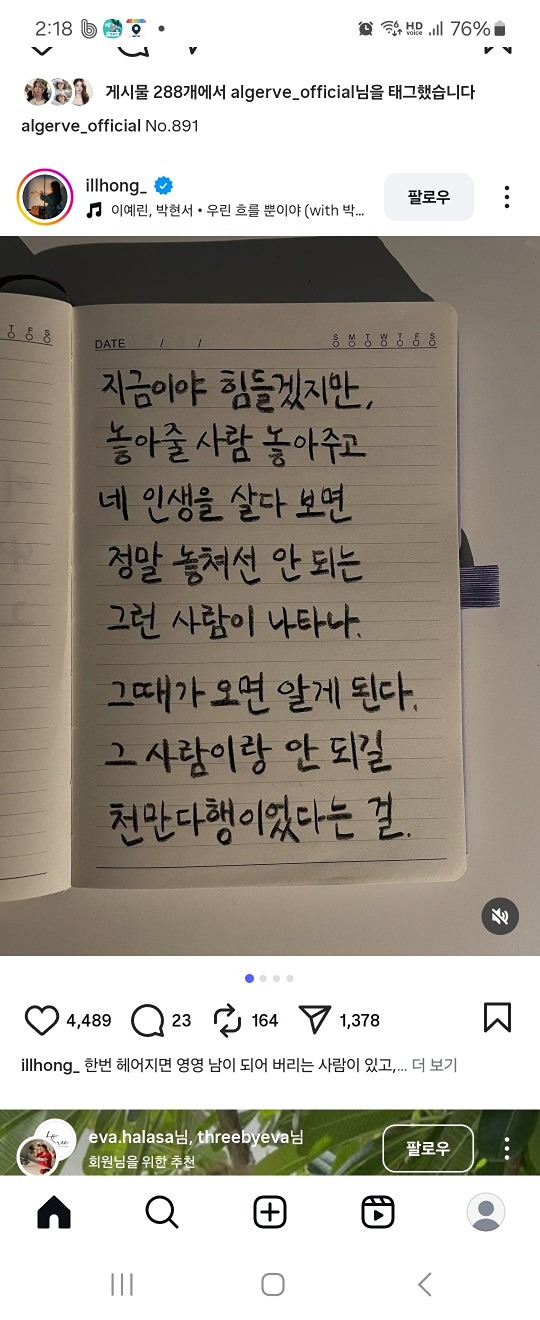 2:18
HD voice
76%
게시물 288개에서 algerve_official님을 태그했습니다
algerve_official No.891
illhong_
이예린, 박현서 • 우린 흐를 뿐이야 (with 박...
팔로우
T F S
DATE / /
S M T W T F S
지금이야 힘들겠지만,
놓아줄 사람 놓아주고
네 인생을 살다 보면
정말 놓쳐선 안 되는
그런 사람이 나타나.
그때가 오면 알게 된다.
그 사람이랑 안 되길
천만다행이었다는 걸.
4,489
23
164
1,378
illhong_ 한번 헤어지면 영영 남이 되어 버리는 사람이 있고,... 더 보기
eva.halasa님, threebyeva님
회원님을 위한 추천
팔로우